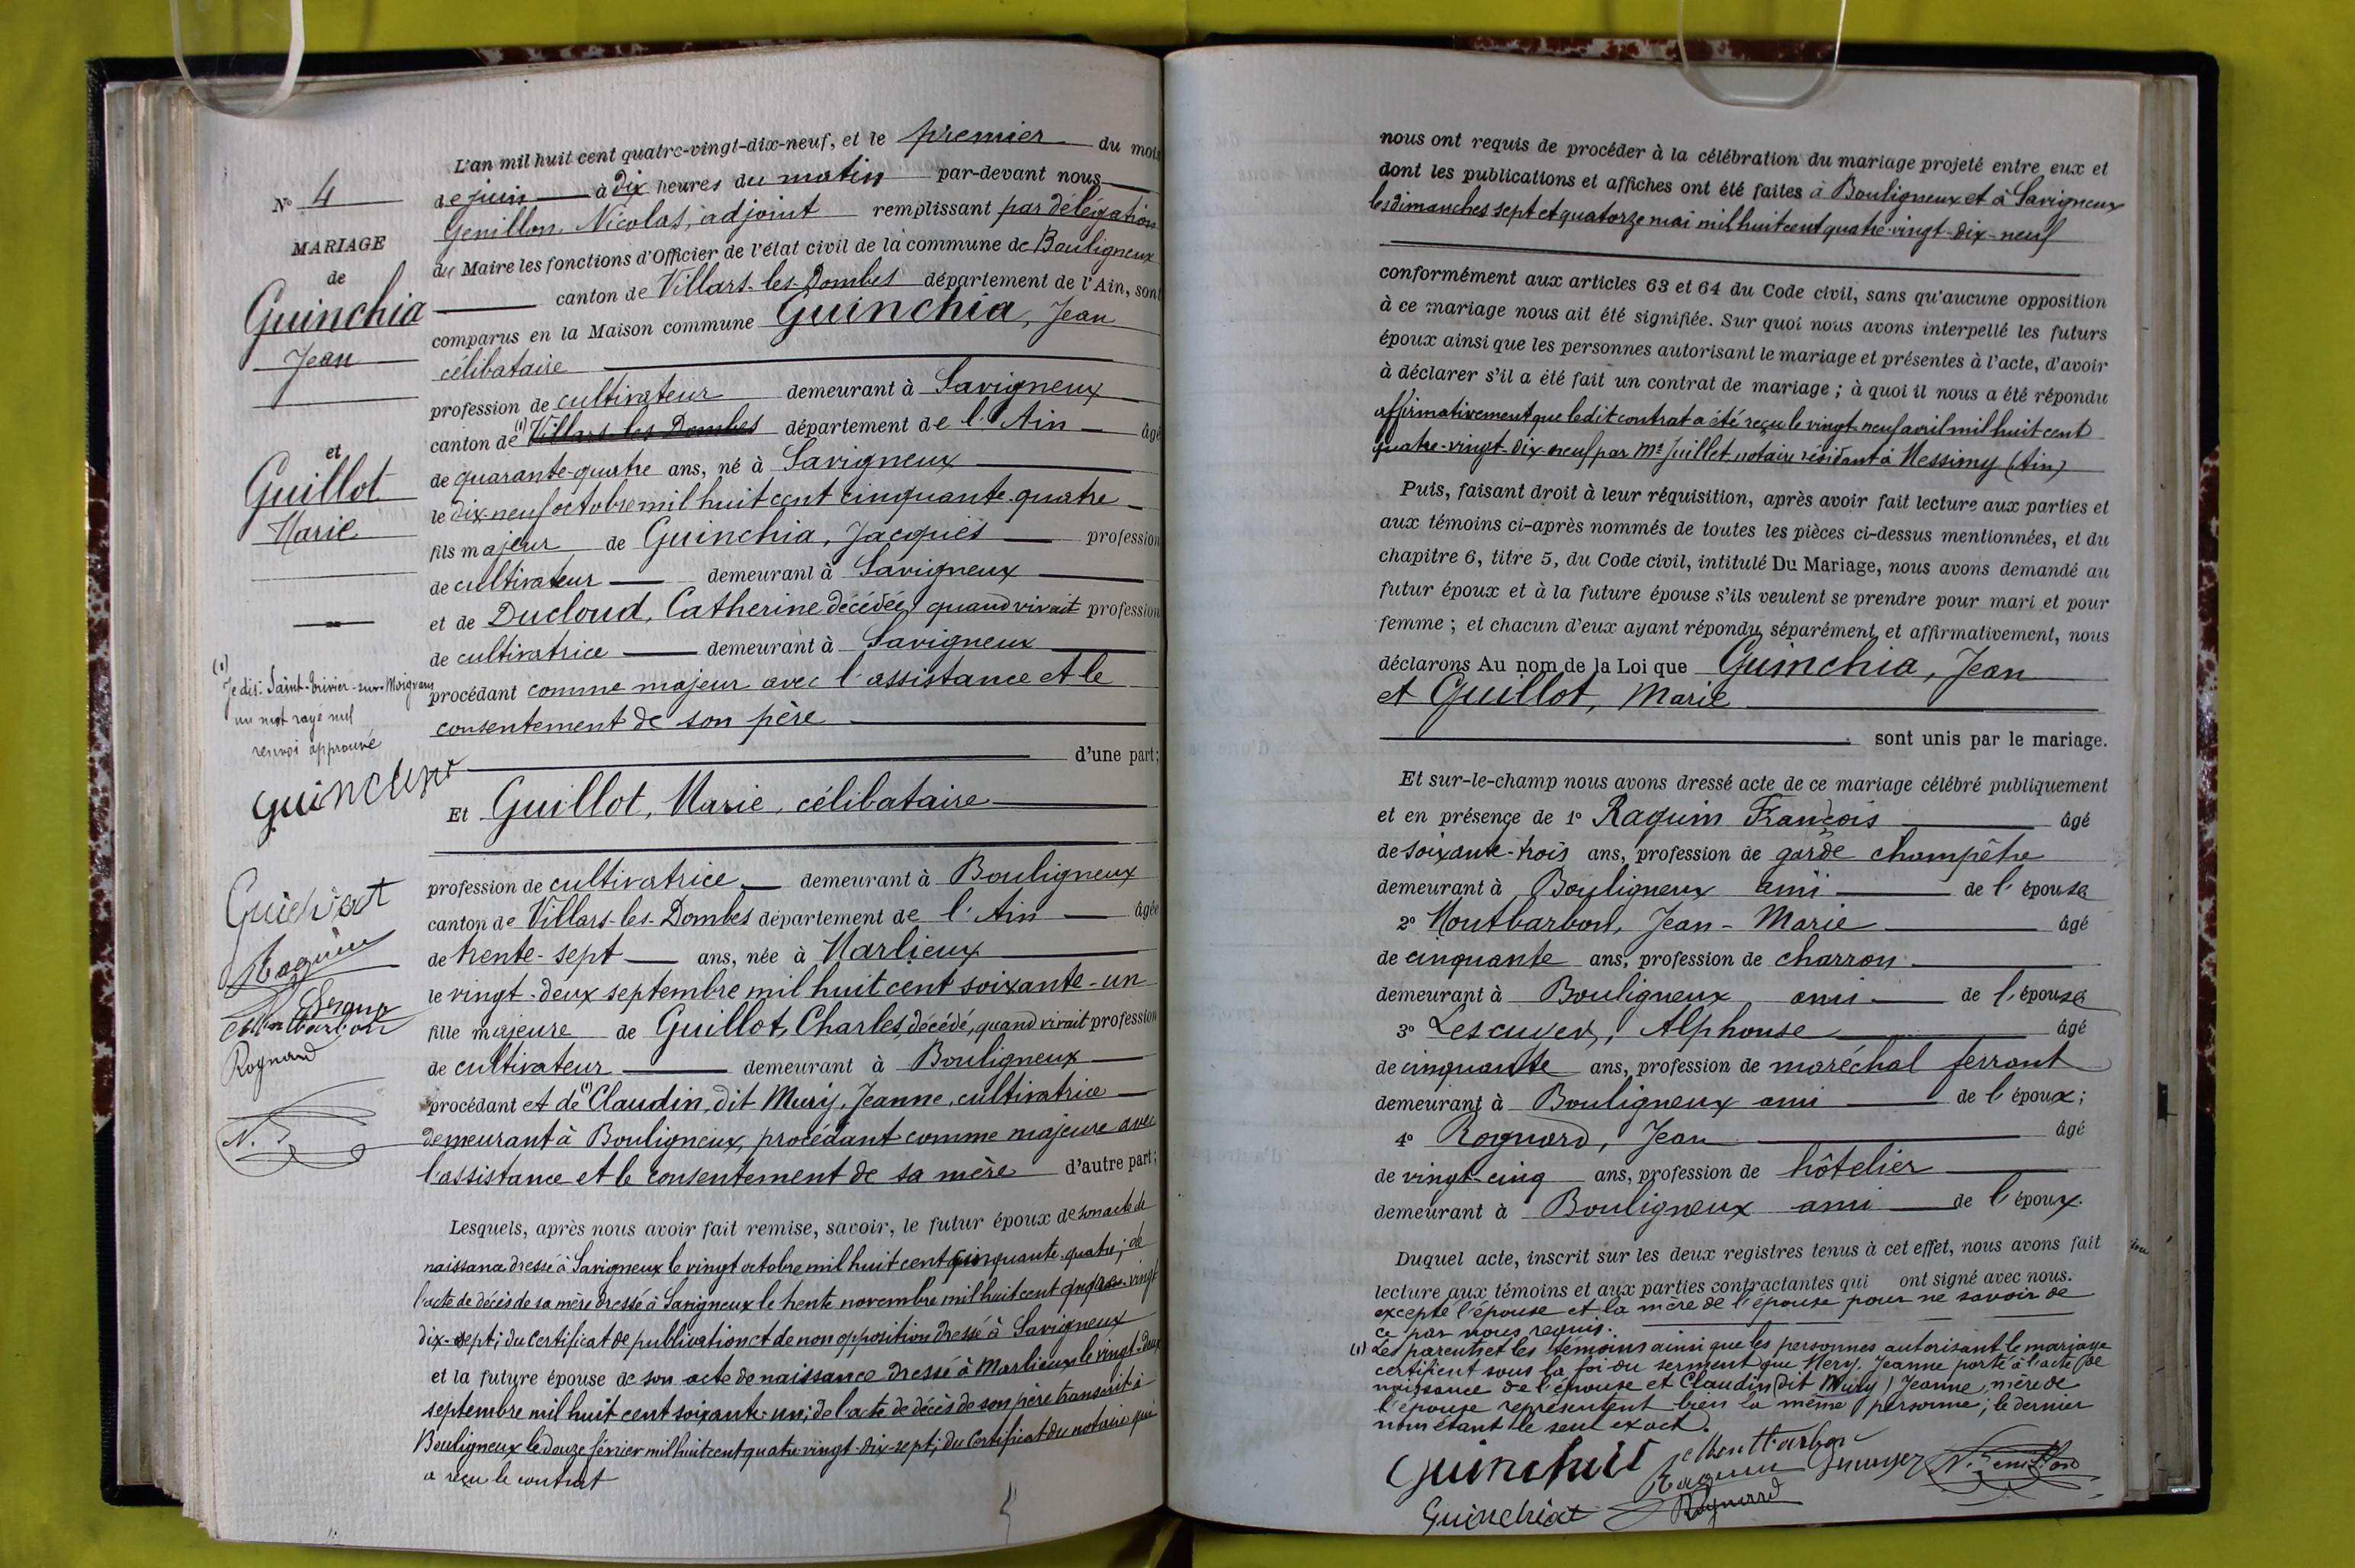 N° 4
MARIAGE
de
Guinchia
Jean
et
Guillot
Marie
(1)
Je dis: Saint-Trivier-sur-Moignans
un mot rayé nul
renvoi approuvé
Raguin
Montbarbon
Rognard
L'an mil huit cent quatre-vingt-dix-neuf, et le premier du mois
de juin à dix heures du matin par-devant nous
Genillon, Nicolas, adjoint remplissant par délégation
du Maire les fonctions d'Officier de l'état civil de la commune de Bouligneux
canton de Villars-les-Dombes département de l'Ain, sont
comparus en la Maison commune Guinchia, Jean
célibataire
profession de cultivateur demeurant à Savigneux
canton de (1) Villars-les-Dombes département de l'Ain âgé
de quarante-quatre ans, né à Savigneux
le dix-neuf octobre mil huit cent cinquante-quatre
fils majeur de Guinchia, Jacques profession
de cultivateur demeurant à Savigneux
et de Ducloud, Catherine décédée, quand vivait profession
de cultivatrice demeurant à Savigneux
procédant comme majeur avec l'assistance et le
consentement de son père
d'une part;
Et Guillot, Marie, célibataire
profession de cultivatrice demeurant à Bouligneux
canton de Villars-les-Dombes département de l'Ain âgée
de trente-sept ans, née à Marlieux
le vingt-deux septembre mil huit cent soixante-un
fille majeure de Guillot, Charles, décédé, quand vivait profession
de cultivateur demeurant à Bouligneux
procédant et de (1) Claudin, dit Mury, Jeanne, cultivatrice
demeurant à Bouligneux, procédant comme majeure avec
l'assistance et le consentement de sa mère d'autre part;
Lesquels, après nous avoir fait remise, savoir, le futur époux de son acte de
naissance dressé à Savigneux le vingt octobre mil huit cent cinquante-quatre; de
l'acte de décès de sa mère dressé à Savigneux le trente novembre mil huit cent quatre-vingt
dix-sept; du certificat de publication et de non opposition dressé à Savigneux
et la future épouse de son acte de naissance dressé à Marlieux le vingt-deux
septembre mil huit cent soixante-un; de l'acte de décès de son père transcrit à
Bouligneux le douze février mil huit cent quatre-vingt-dix-sept; du certificat du notaire qui
a reçu le contrat
nous ont requis de procéder à la célébration du mariage projeté entre eux et
dont les publications et affiches ont été faites à Bouligneux et à Savigneux
les dimanches sept et quatorze mai mil huit cent quatre-vingt-dix-neuf
conformément aux articles 63 et 64 du Code civil, sans qu'aucune opposition
à ce mariage nous ait été signifiée. Sur quoi nous avons interpellé les futurs
époux ainsi que les personnes autorisant le mariage et présentes à l'acte, d'avoir
à déclarer s'il a été fait un contrat de mariage; à quoi il nous a été répondu
affirmativement que ledit contrat a été reçu le vingt-neuf avril mil huit cent
quatre-vingt-dix-neuf par Me Juillet, notaire résidant à Messimy (Ain)
Puis, faisant droit à leur réquisition, après avoir fait lecture aux parties et
aux témoins ci-après nommés de toutes les pièces ci-dessus mentionnées, et du
chapitre 6, titre 5, du Code civil, intitulé Du Mariage, nous avons demandé au
futur époux et à la future épouse s'ils veulent se prendre pour mari et pour
femme; et chacun d'eux ayant répondu séparément et affirmativement, nous
déclarons Au nom de la Loi que Guinchia, Jean
et Guillot, Marie
sont unis par le mariage.
Et sur-le-champ nous avons dressé acte de ce mariage célébré publiquement
et en présence de 1° Raguin François âgé
de soixante-trois ans, profession de garde champêtre
demeurant à Bouligneux ami de l'épouse
2° Montbarbon, Jean-Marie âgé
de cinquante ans, profession de charron
demeurant à Bouligneux ami de l'épouse
3° Lescuyer, Alphonse âgé
de cinquante ans, profession de maréchal ferrant
demeurant à Bouligneux ami de l'époux;
4° Rognard, Jean âgé
de vingt-cinq ans, profession de hôtelier
demeurant à Bouligneux ami de l'époux.
Duquel acte, inscrit sur les deux registres tenus à cet effet, nous avons fait
lecture aux témoins et aux parties contractantes qui ont signé avec nous.
excepté l'épouse et la mère de l'épouse pour ne savoir de
ce par nous requis.
(1) Les parents et les témoins ainsi que les personnes autorisant le mariage
certifient sous la foi du serment que Mery, Jeanne porté à l'acte de
naissance de l'épouse et Claudin (dit Mury) Jeanne, mère de
l'épouse représentent bien la même personne; le dernier
nom étant le seul exact.
Montbarbon
Raguin
N. Genillon
Guinchiat
Rognard